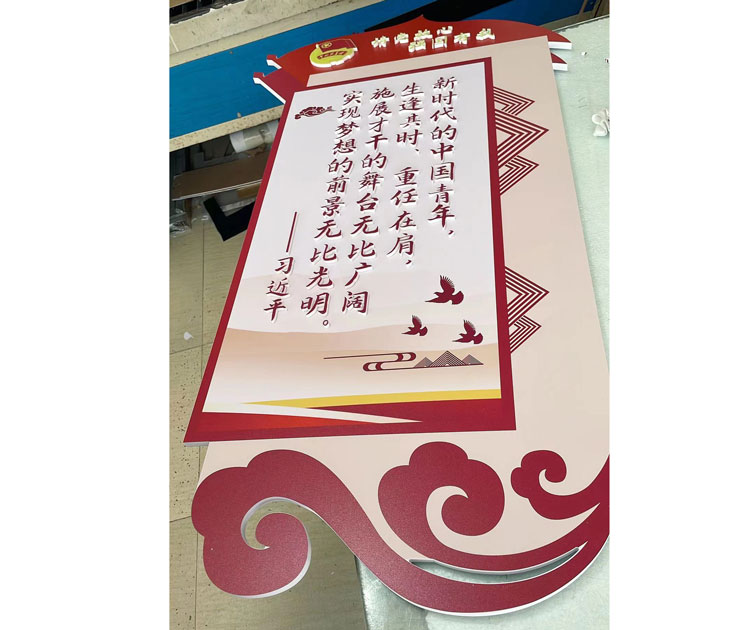 请党放心
强国有我
新时代的中国青年，
生逢其时、重任在肩，
施展才干的舞台无比广阔
实现梦想的前景无比光明。
——习近平